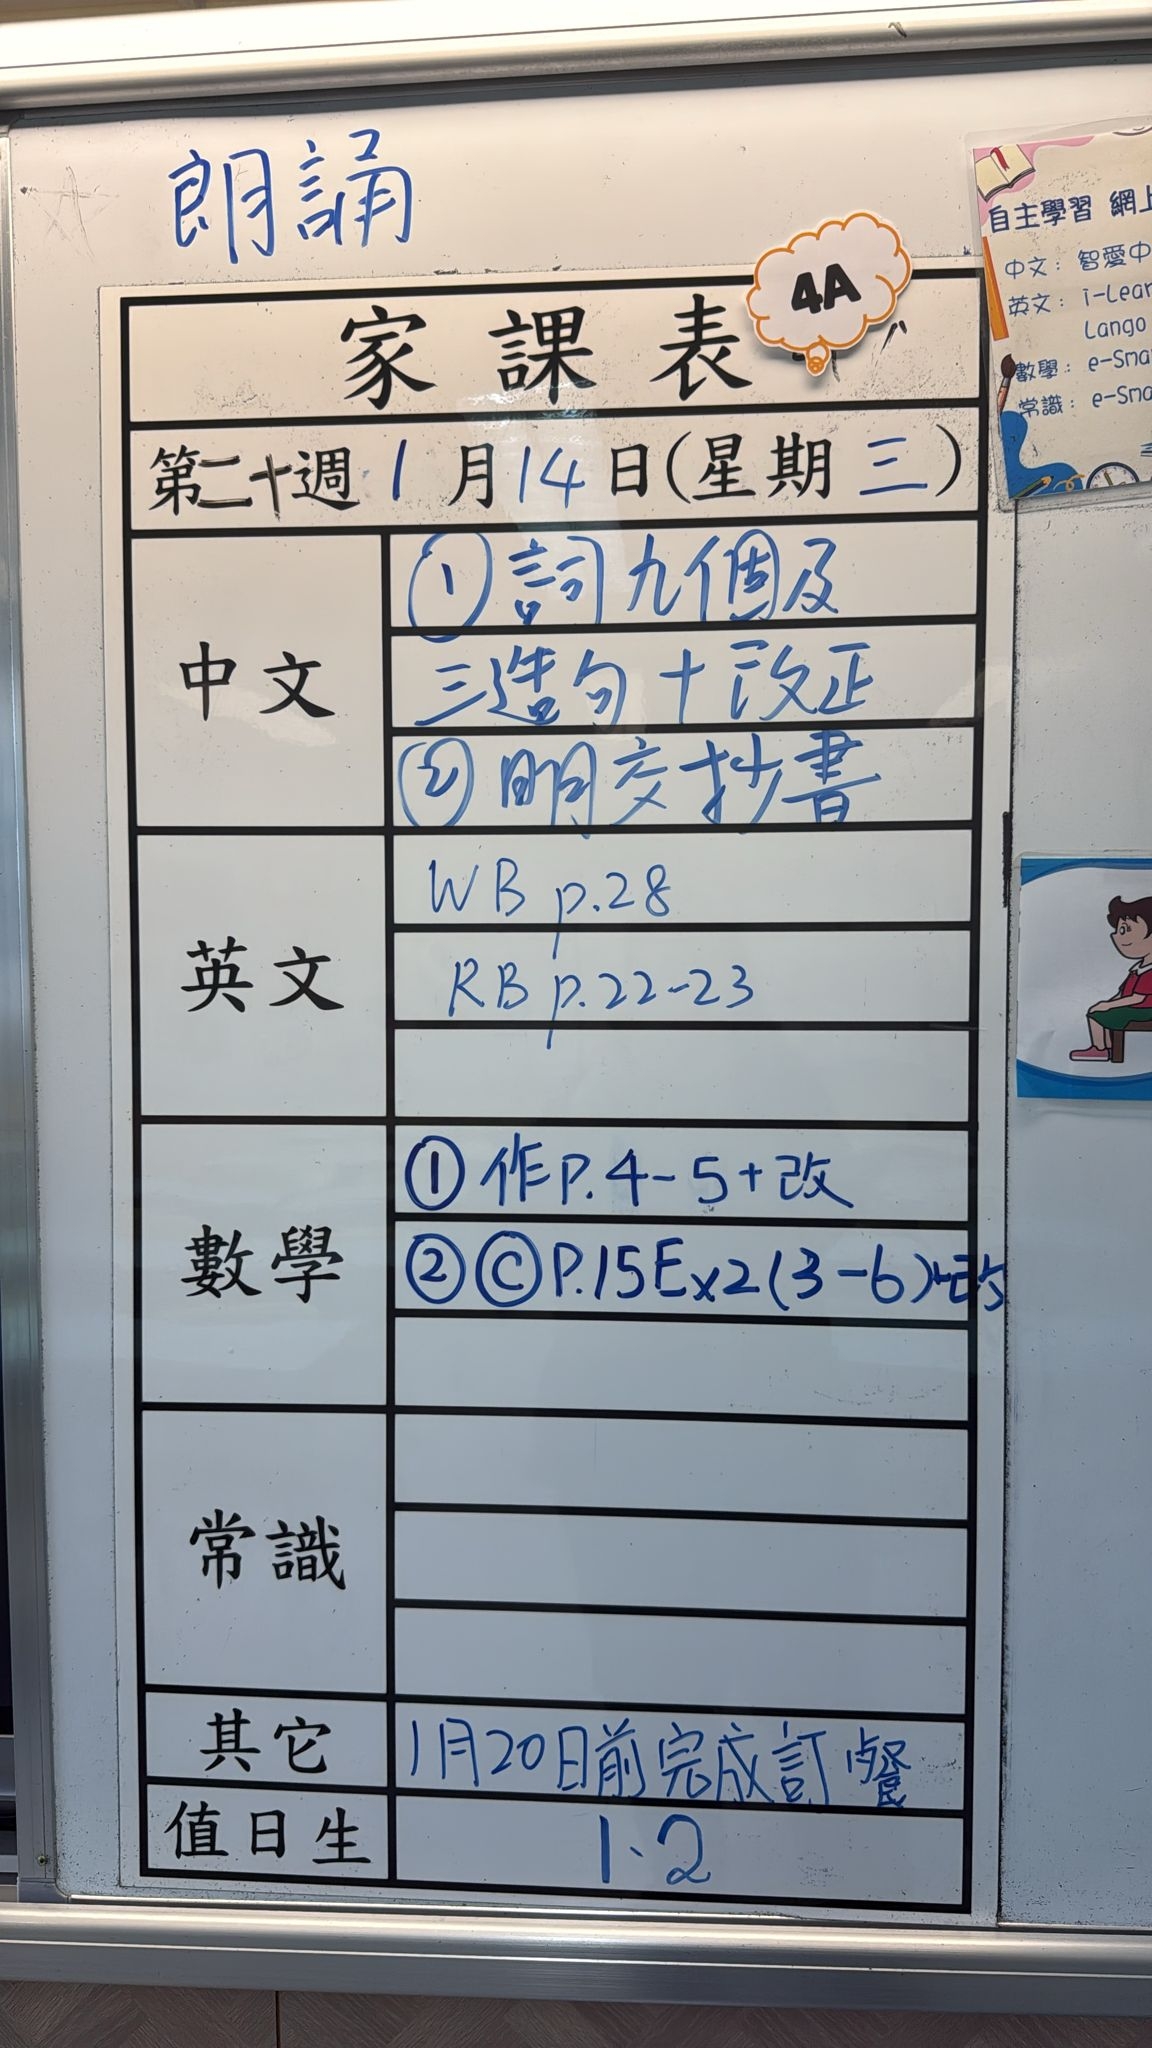 朗誦
自主學習 網上
中文：智愛中
英文：i-Lear
Lango
數學：e-Smar
常識：e-Sma
4A
家課表
第二十週 1月14日(星期三)
中文
① 詞九個及
三造句+改正
② 明交抄書
英文
WB p.28
RB p.22-23
數學
① 作P.4-5+改
② Ⓒ P.15Ex2(3-6)+改
常識
其它
1月20日前完成訂餐
值日生
1、2